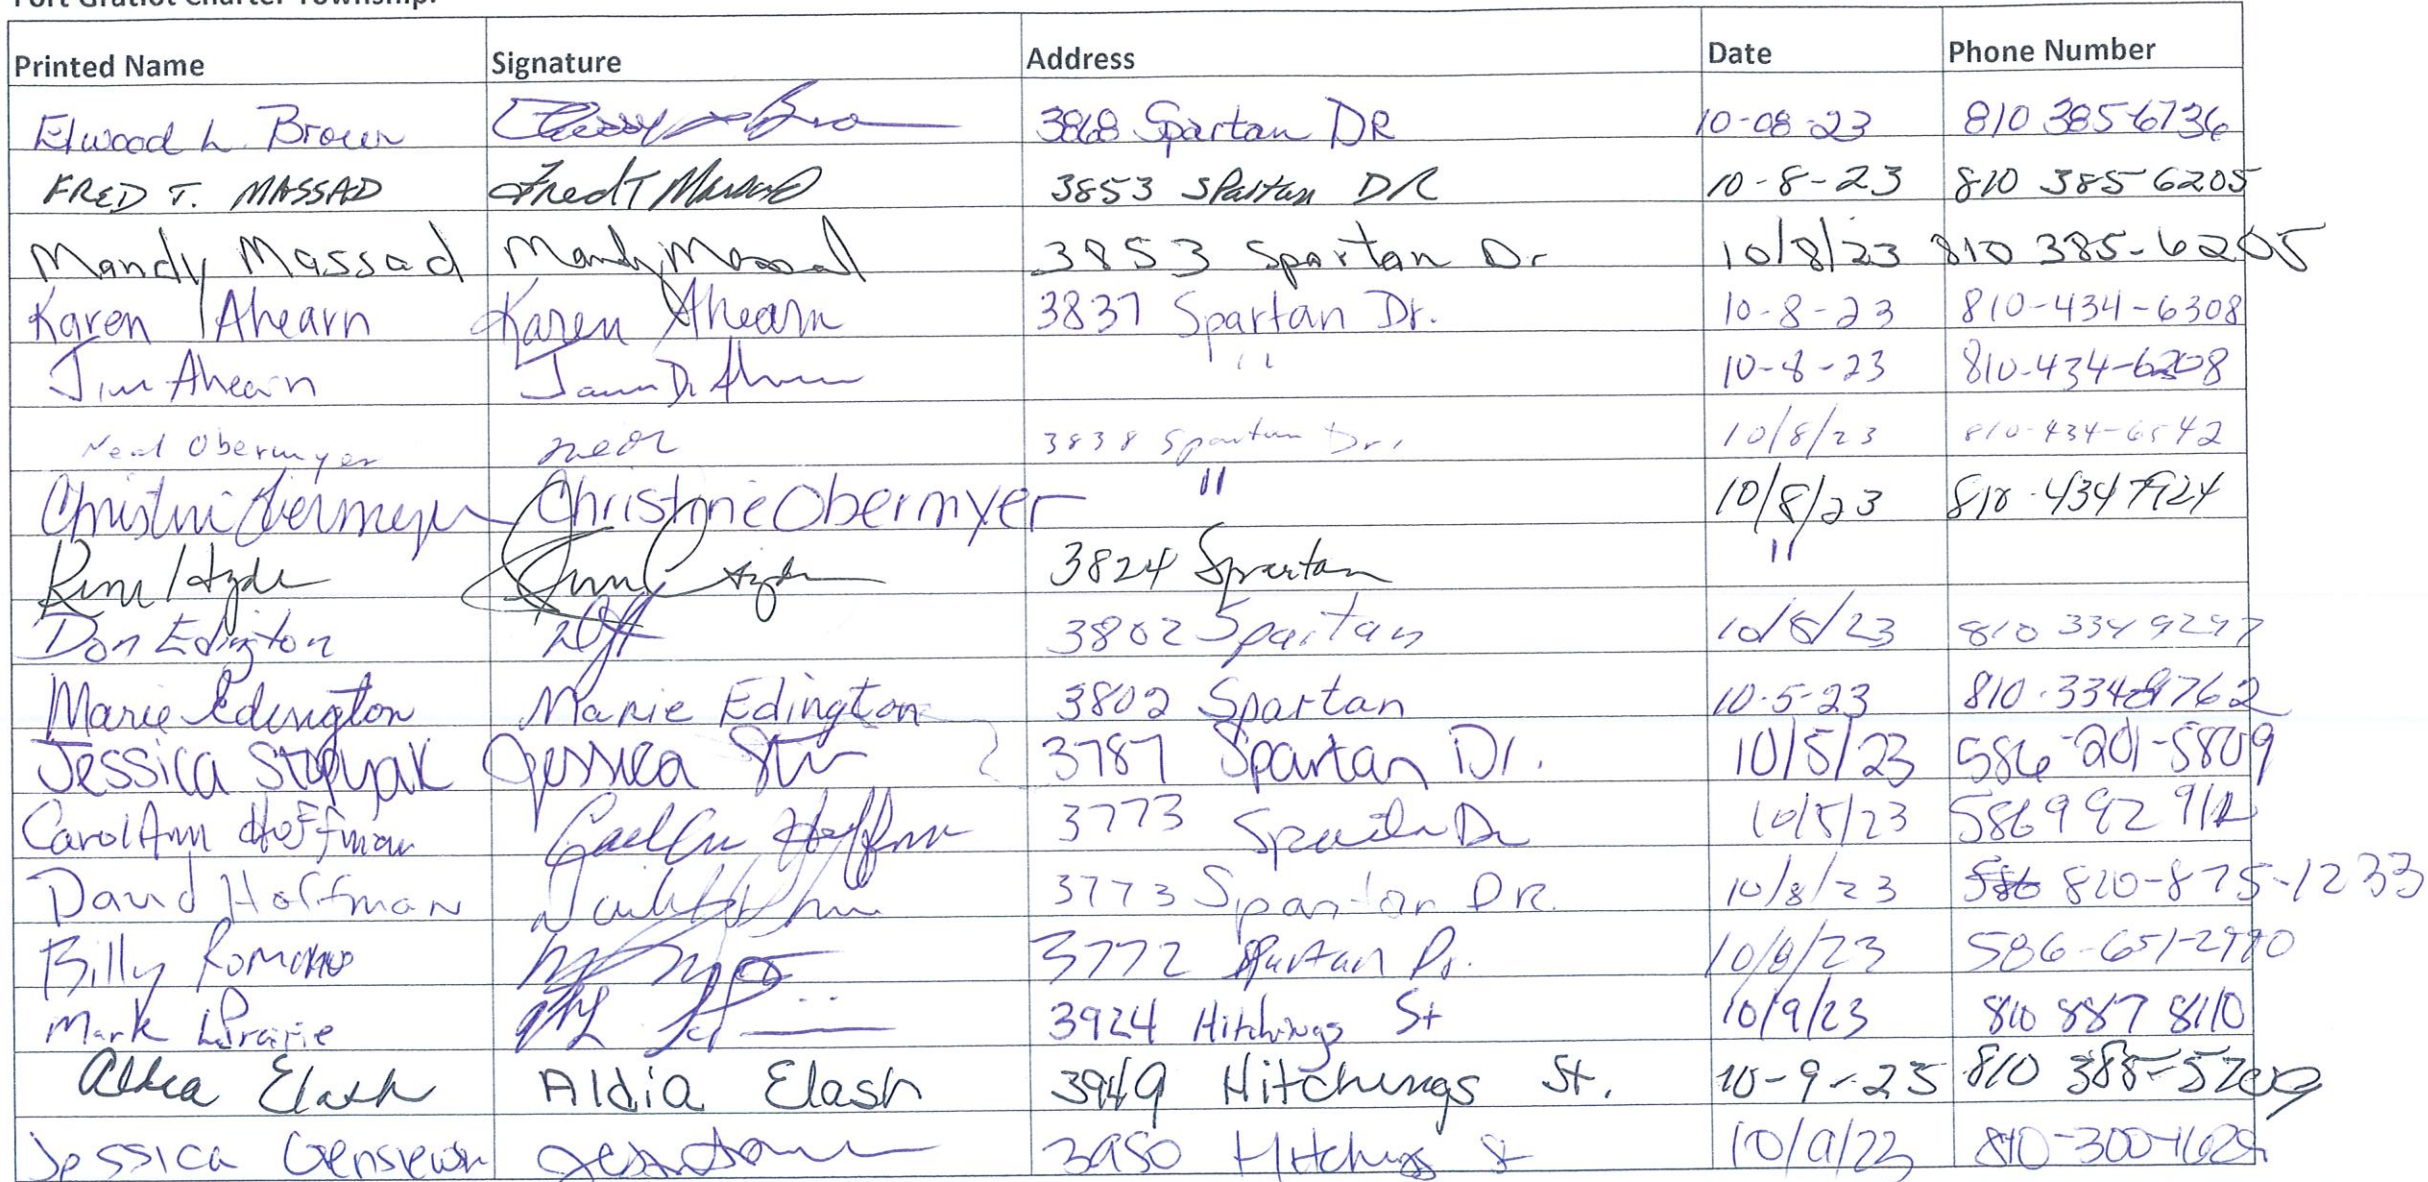 Fort Gratiot Charter Township.
Printed Name Signature Address Date Phone Number
Elwood L. Brown 3868 Spartan DR 10-08-23 810 385 6736
FRED T. MASSAD Fred T Massad 3853 Spartan DR 10-8-23 810 385 6205
Mandy Massad Mandy Massad 3853 Spartan Dr 10/8/23 810 385-6205
Karen Ahearn Karen Ahearn 3837 Spartan Dr. 10-8-23 810-434-6308
Jim Ahearn " 10-8-23 810-434-6208
Neal Obermyer Neal 3838 Spartan Dr. 10/8/23 810-434-6542
Christine Obermeyer Christine Obermyer " 10/8/23 810-434
Hyde 3824 Spartan "
Don Edington 3802 Spartan 10/8/23 810 334 9297
Marie Edington Marie Edington 3802 Spartan 10-5-23 810-334
Jessica Jessica 3787 Spartan Dr. 10/5/23 586-201-5809
CarolAnn Hoffman Hoffman 3773 Spartan Dr 10/5/23 586 992
David Hoffman 3773 Spartan DR. 10/8/23 810-875-1233
Billy Romano 3772 Spartan Dr. 10/8/23 586-651-2990
Mark 3924 Hitchings St 10/9/23 810 887 8110
Aldia Elash Aldia Elash 3949 Hitchings St. 10-9-23 810 385-5209
Jessica 3950 Hitchings St 10/9/23 810-300-1628